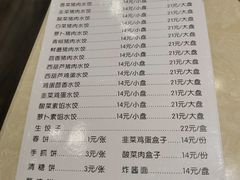 香菜猪肉水饺 14元/小盘 21元/大盘
酸菜猪肉水饺 14元/小盘 21元/大盘
白菜猪肉水饺 14元/小盘 21元/大盘
萝卜猪肉水饺 14元/小盘 21元/大盘
青椒猪肉水饺 14元/小盘 21元/大盘
鲜蘑猪肉水饺 14元/小盘 21元/大盘
茴香猪肉水饺 14元/小盘 21元/大盘
西葫芦猪肉水饺 14元/小盘 21元/大盘
西葫芦鸡蛋水饺 14元/小盘 21元/大盘
鸡蛋茴香水饺 14元/小盘 21元/大盘
韭菜鸡蛋水饺 14元/小盘 21元/大盘
酸菜素馅水饺 14元/小盘 21元/大盘
萝卜素馅水饺 14元/小盘 21元/大盘
生饺子 22元/盒
春饼 1元/张 韭菜鸡蛋盒子 14元/份
手抓饼 3元/张 酸菜肉盒子 14元/份
清糖饼 炸酱面 14元/盘